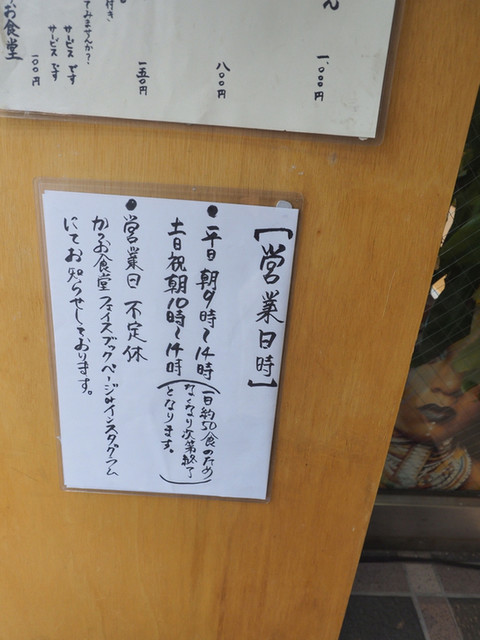 ん
1,000円
八〇〇円
一五〇円
付き
てみませんか?
サービスです
サービスです
一〇〇円
お食堂
【営業日時】
● 平日 朝9時〜14時
土日祝朝10時〜14時
(一日約50食のため
なくなり次第終了
となります。)
● 営業日 不定休
かつお食堂フェイスブックページorインスタグラム
にてお知らせしております。